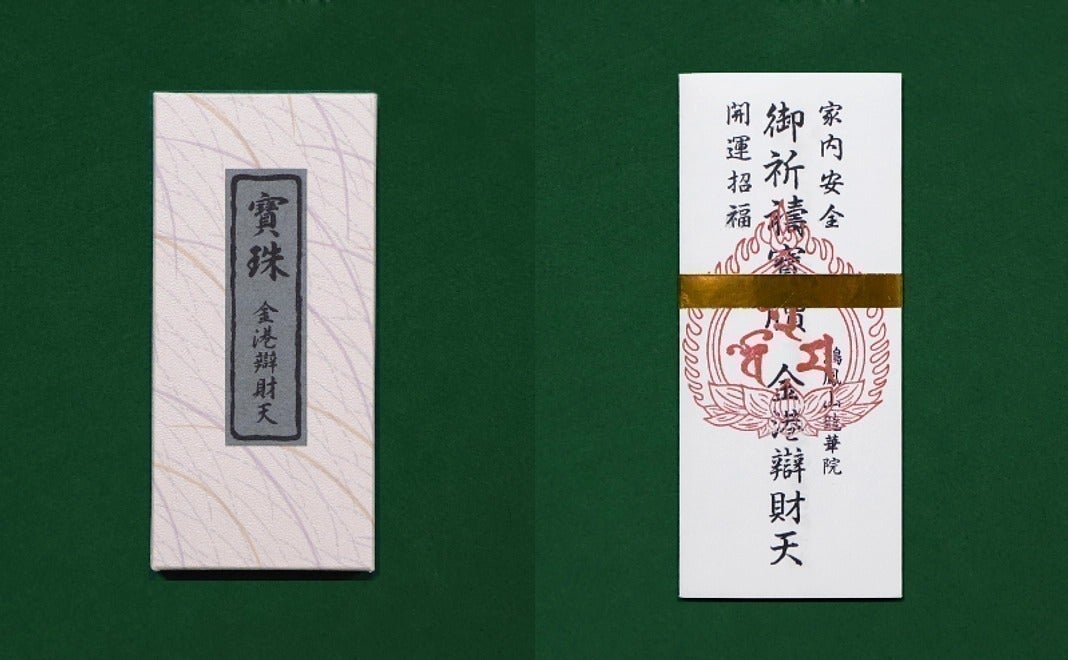 寶珠
金港辯財天
家内安全
御祈禱寳牘 金港辯財天
開運招福
鳳山龍華院